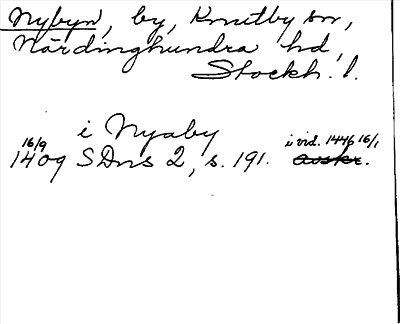 Nybyn, by, Knutby sn,
Närdinghundra hd,
Stockh. l.
i Nyaby
16/9 1409 SDns 2, s. 191. i vid. 1446 16/1 avskr.